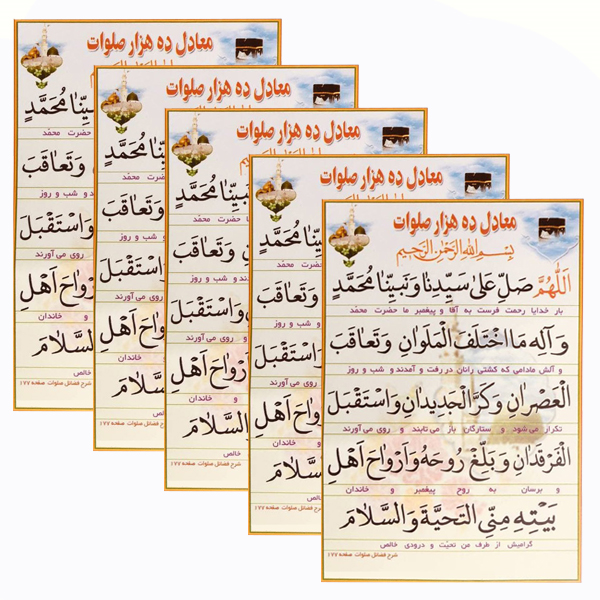 معادل ده هزار صلوات
بِسْمِ اللهِ الرَّحْمنِ الرَّحيمِ
اَللّٰهُمَّ صَلِّ عَلىٰ سَيِّدِنٰا وَنَبِيِّنٰا مُحَمَّدٍ
بار خدایا رحمت فرست به آقا و پیغمبر ما حضرت محمّد
وَ آلِهِ مَا اخْتَلَفَ الْمَلَوٰانِ وَتَعٰاقَبَ
و آلش مادامی که کشتی رانان در رفت و آمدند و شب و روز
الْعَصْرٰانِ وَكَرَّ الْجَديدٰانِ وَاسْتَقْبَلَ
تکرار می شود و ستارگان باز می تابند و روی می آورند
الْفَرْقَدٰانِ وَ بَلِّغْ رُوحَهُ وَ اَرْوٰاحَ اَهْلِ
و برسان به روح پیغمبر و خاندان
بَيْتِهِ مِنِّي التَّحِيَّةَ وَ السَّلاٰمَ
گرامیش از طرف من تحیّت و درودی خالص
شرح فضائل صلوات صفحه ۱۷۷